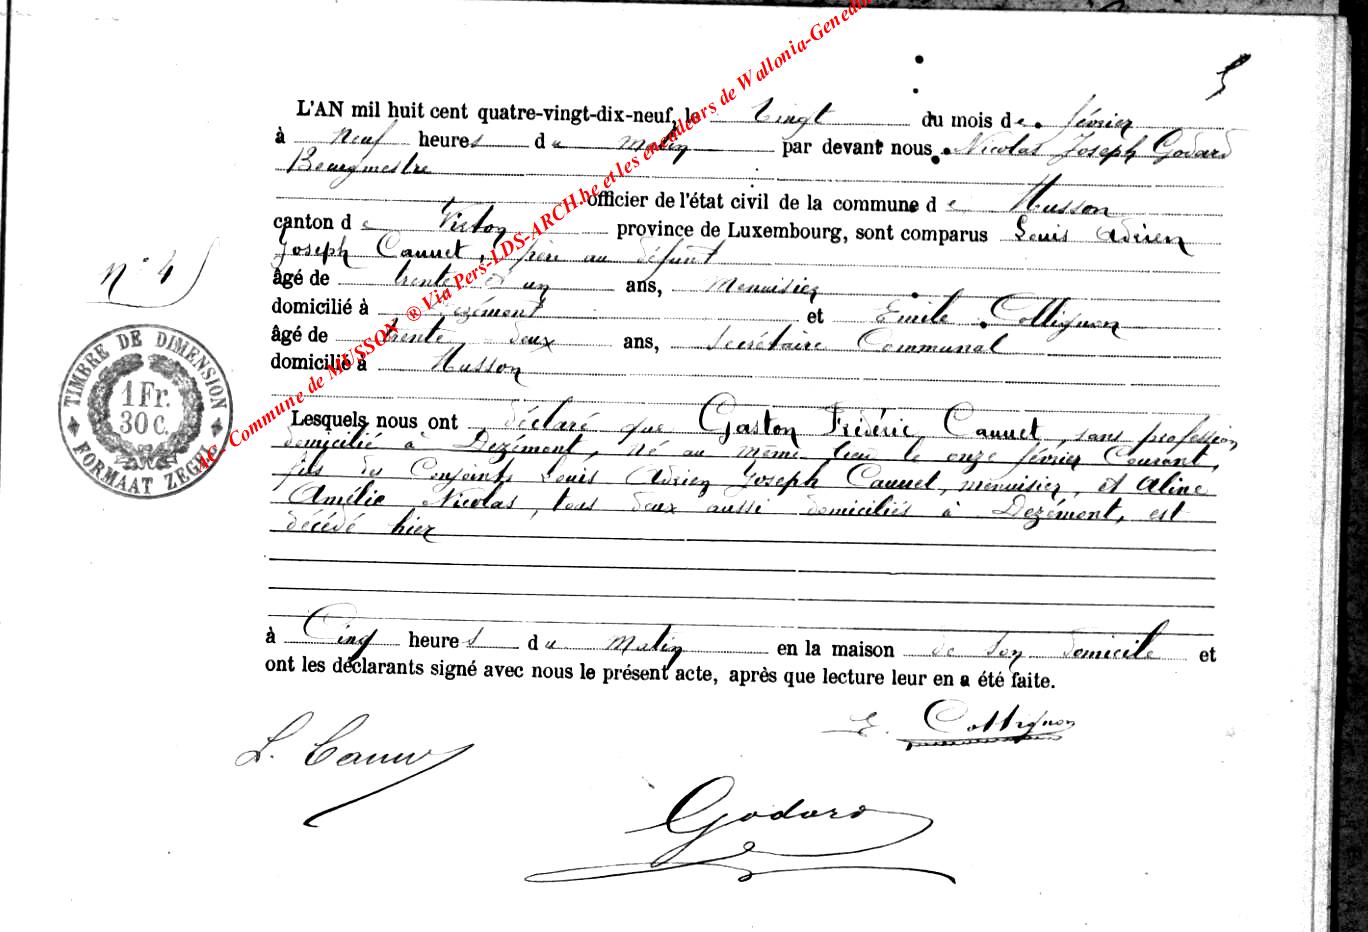 5
L'AN mil huit cent quatre-vingt-dix-neuf, le Vingt du mois de février
à neuf heures du matin par devant nous Nicolas Joseph Godard
Bourgmestre
officier de l'état civil de la commune de Musson
canton de Virton province de Luxembourg, sont comparus Louis Adrien
Joseph Cauuet, père au défunt
N° 4
âgé de trente et un ans, Menuisier
domicilié à et Emile Collignon
âgé de trente deux ans, Secrétaire Communal
domicilié à Musson
TIMBRE DE DIMENSION
1 Fr.
30 C.
FORMAAT ZEGEL
Commune de MUSSON ® Via Pers-LDS-ARCH.be et les encodeurs de Wallonia-Gened
Lesquels nous ont déclaré que Gaston Frédéric Cauuet, sans profession,
domicilié à Dezément, né au même lieu le onze février Courant,
fils des Conjoints Louis Adrien Joseph Cauuet, menuisier, et Aline
Amélie Nicolas, tous deux aussi domiciliés à Dezément, est
décédé hier
à Cinq heures du Matin en la maison de son domicile et
ont les déclarants signé avec nous le présent acte, après que lecture leur en a été faite.
E. Collignon
L. Cauuet
Godard